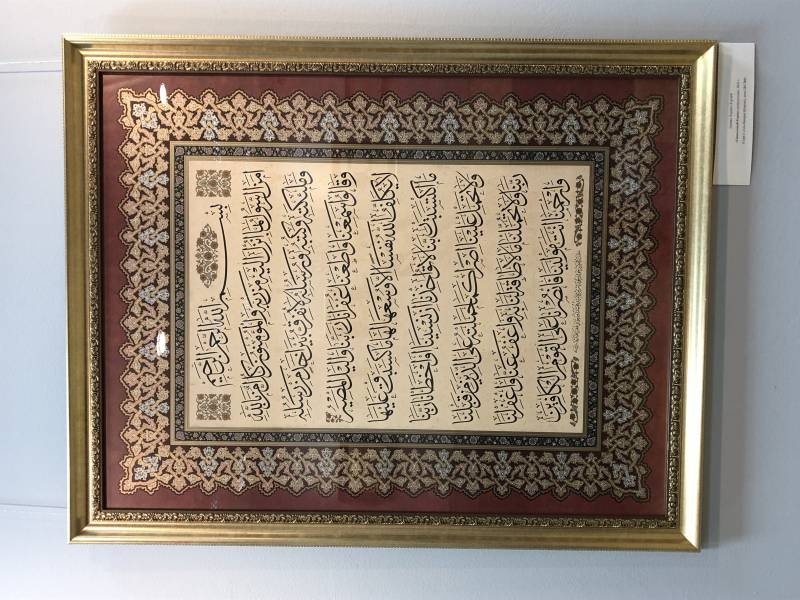 بسم الله الرحمن الرحيم
آمن الرسول بما أنزل إليه من ربه والمؤمنون كل آمن بالله
وملئكته وكتبه ورسله لا نفرق بين أحد من رسله
وقالوا سمعنا وأطعنا غفرانك ربنا وإليك المصير
لا يكلف الله نفسا إلا وسعها لها ما كسبت وعليها
ما اكتسبت ربنا لا تؤاخذنا إن نسينا أو أخطأنا ربنا
ولا تحمل علينا إصرا كما حملته على الذين من قبلنا
ربنا ولا تحملنا ما لا طاقة لنا به واعف عنا واغفر لنا
وارحمنا أنت مولينا فانصرنا على القوم الكافرين